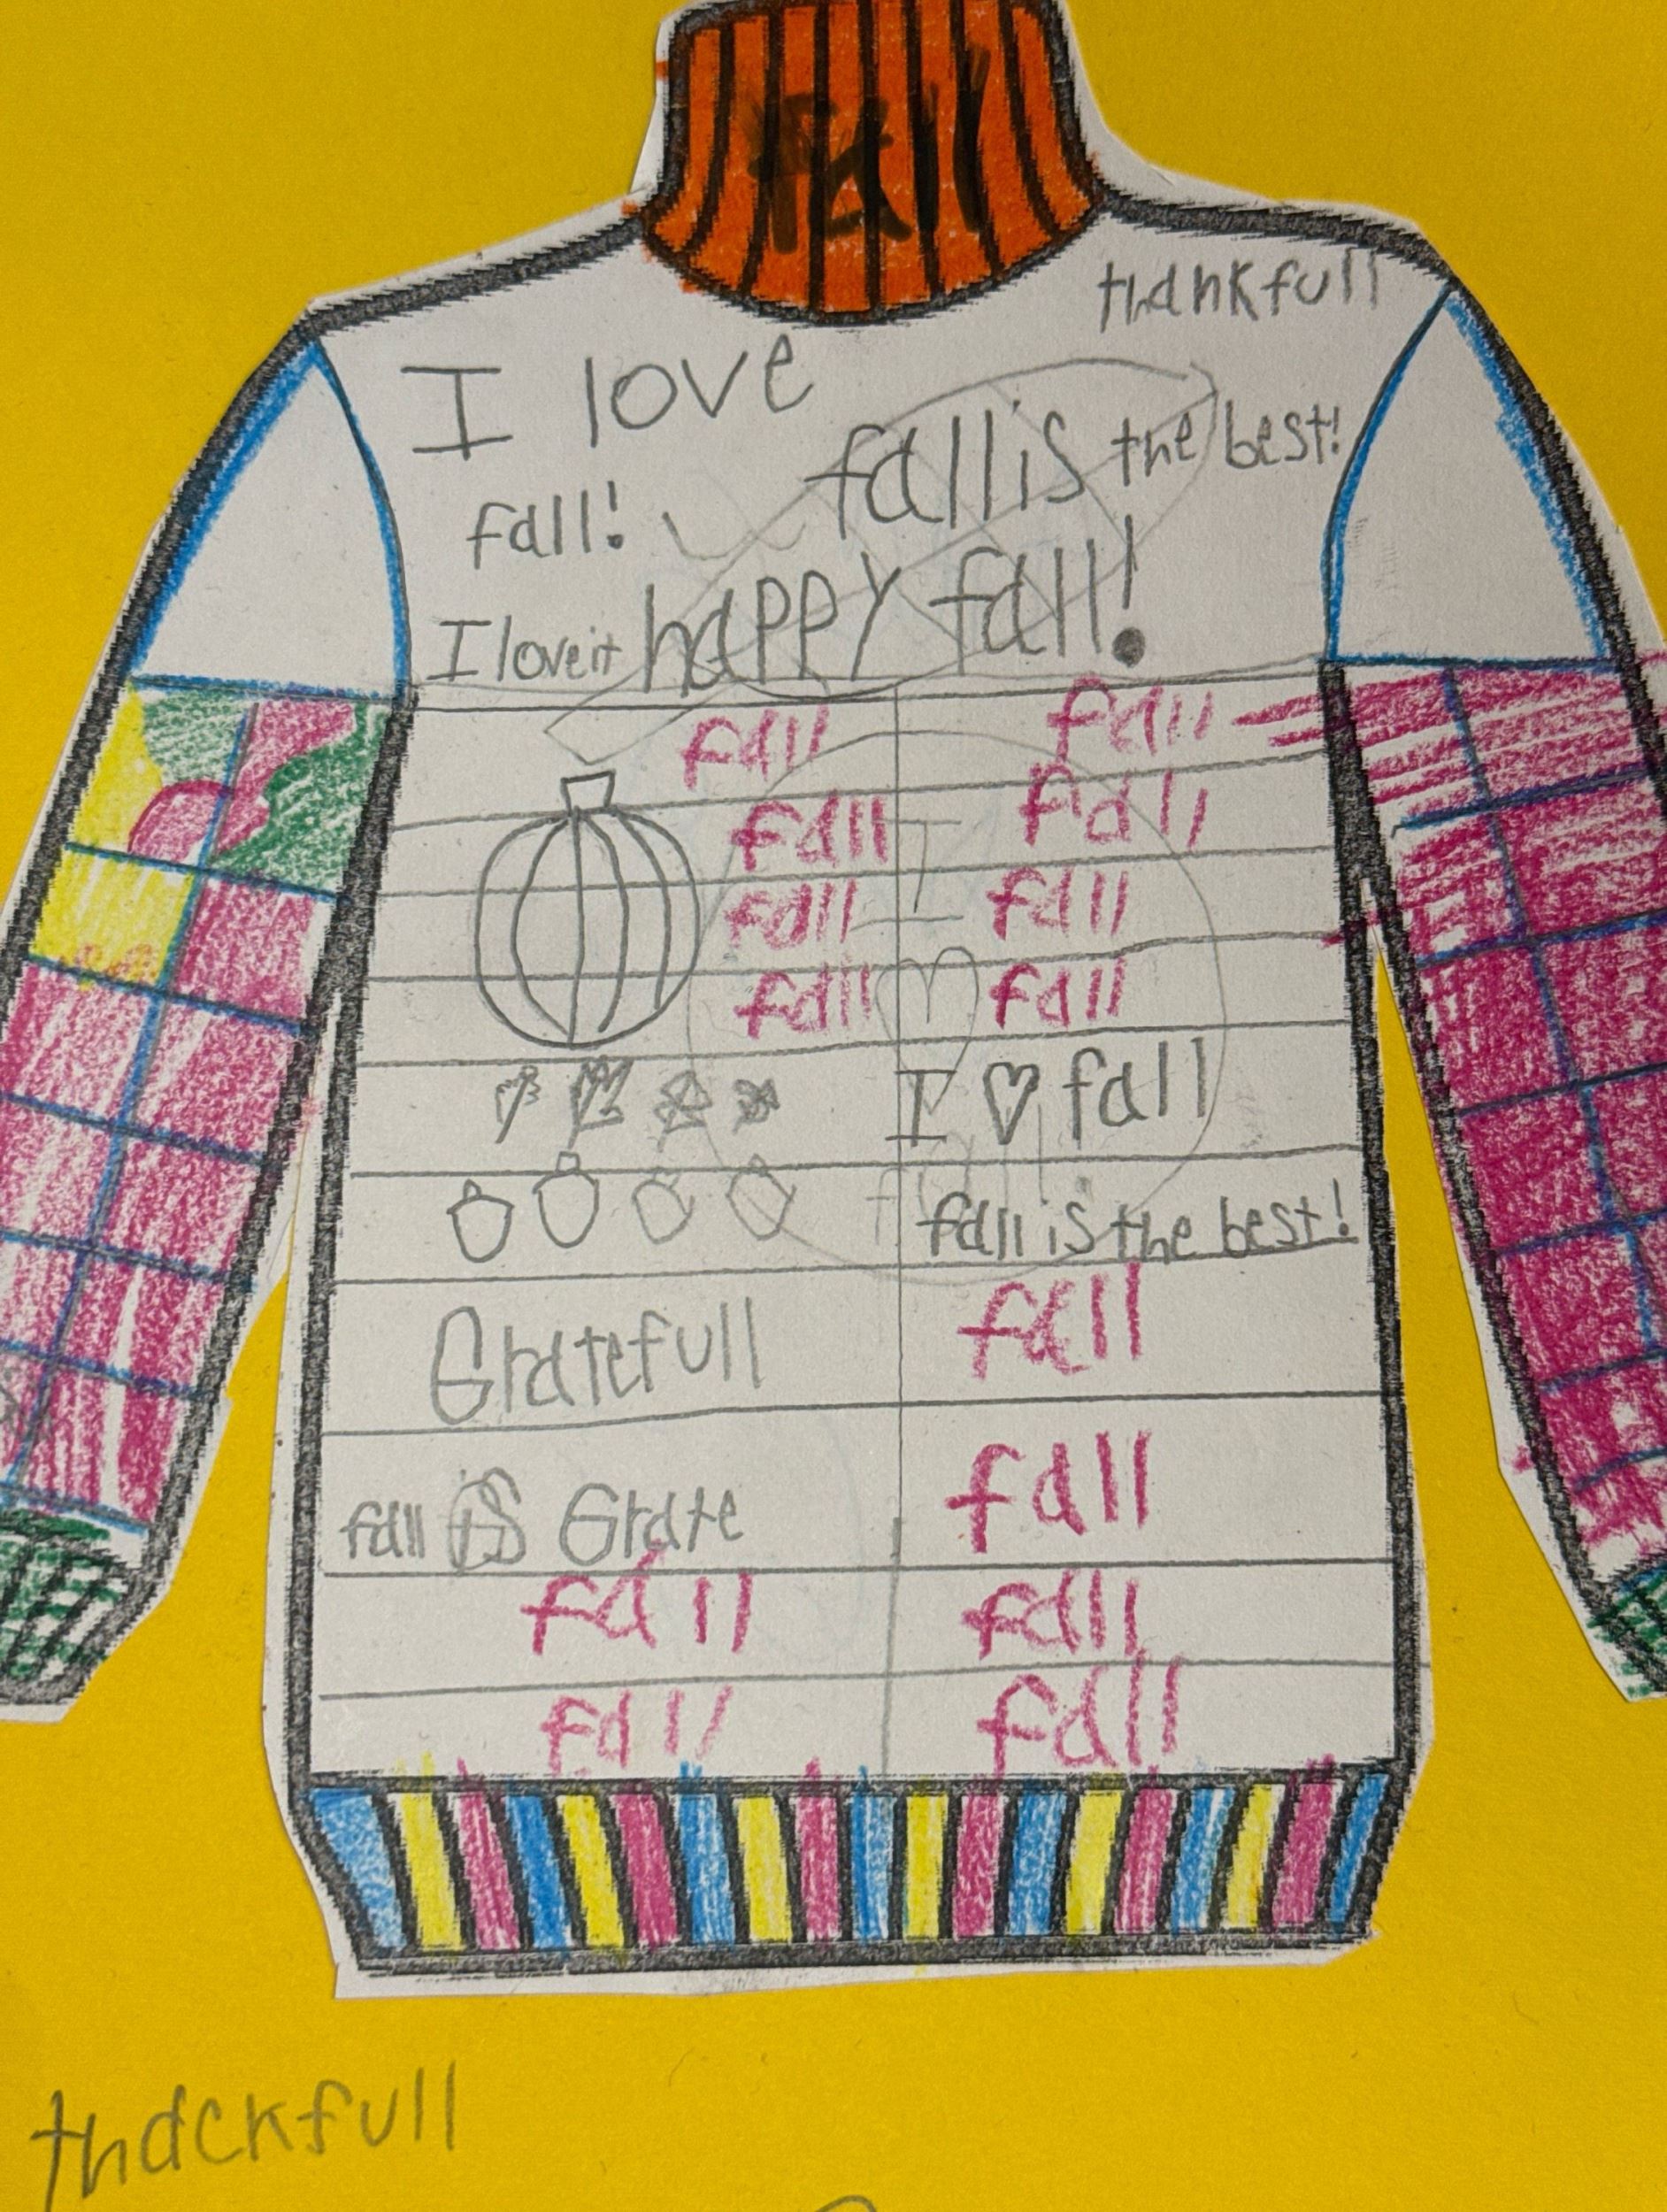 fall
thankfull
I love
fall is the best!
fall!
I love it happy fall!
fall fall
fall fall
fall fall
fall fall
I ♡ fall
fall is the best!
Gratefull fall
fall is Grate fall
fall fall
fall fall
thackfull